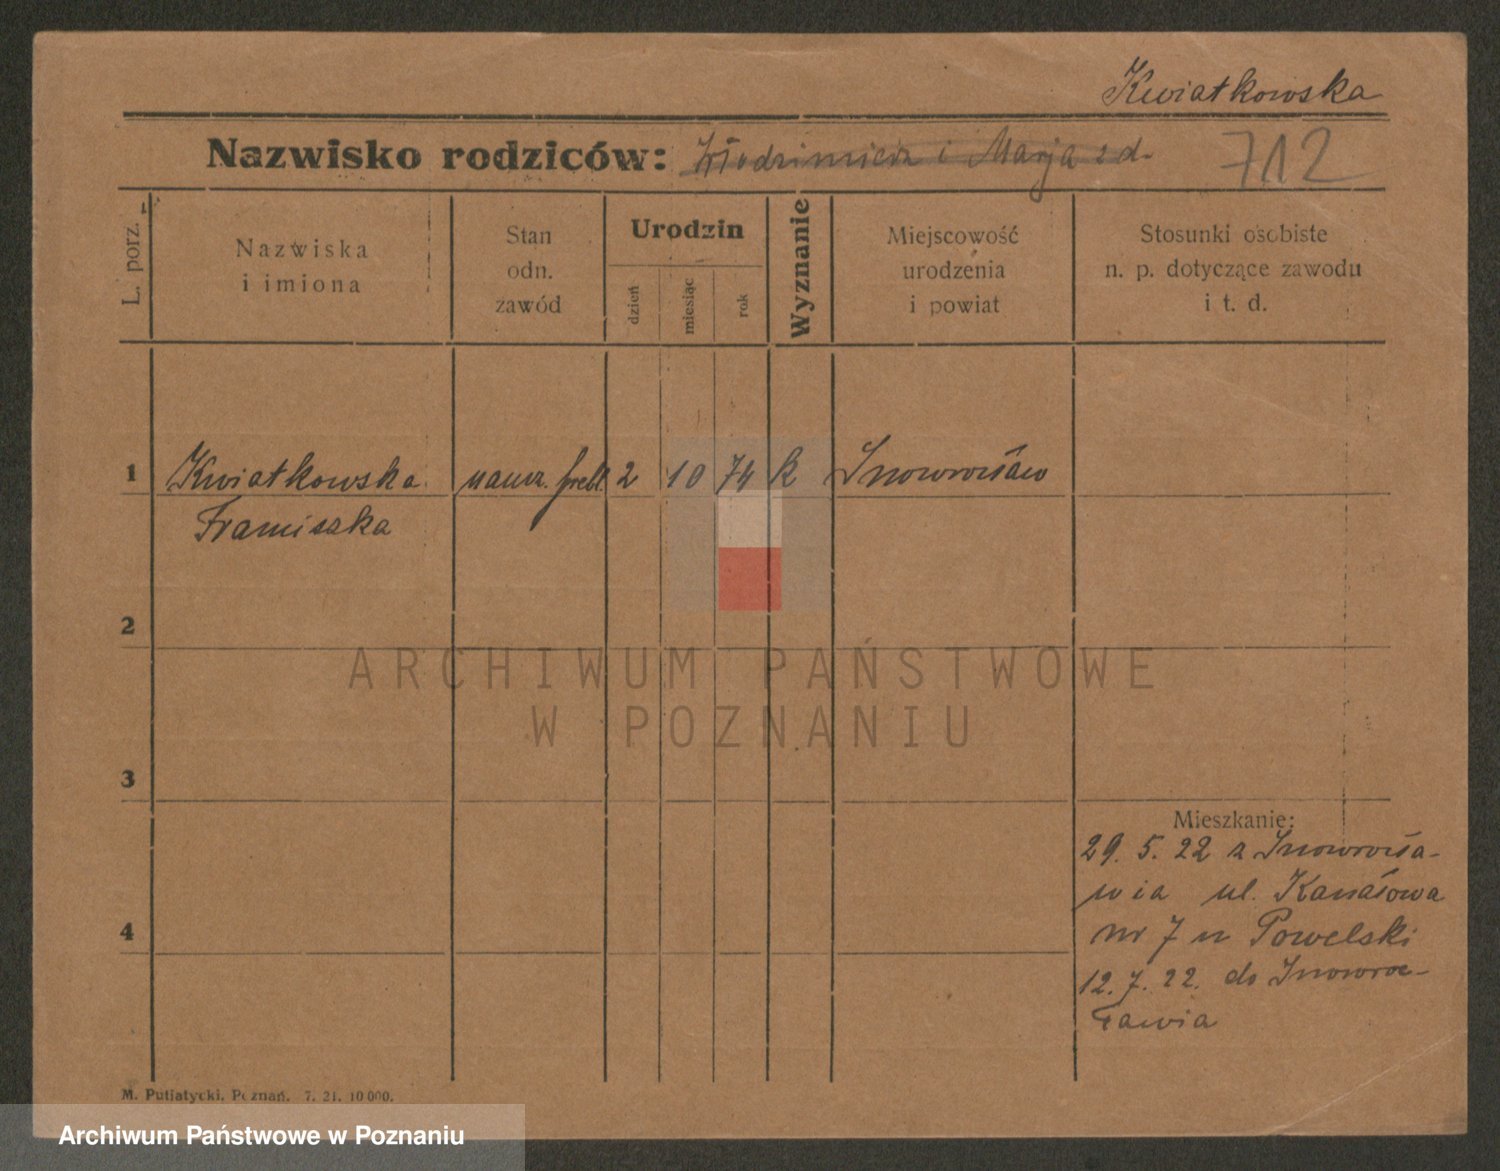 Kwiatkowska
Nazwisko rodziców: Włodzimierz i Marja z d.
712
L. porz.
Nazwiska
i imiona
Stan
odn.
zawód
Urodzin
dzień
miesiąc
rok
Wyznanie
Miejscowość
urodzenia
i powiat
Stosunki osobiste
n. p. dotyczące zawodu
i t. d.
1 Kwiatkowska naucz. frebl. 2 10 74 k Inowrocław
Franciszka
2
3
Mieszkanie:
29. 5. 22 z Inowrocła-
wia ul. Kanałowa
4
nr 7 u Powelski
12. 7. 22. do Inowroc-
ławia
M. Putiatycki, Poznań. 7. 21. 10 000.
ARCHIWUM PAŃSTWOWE
W POZNANIU
Archiwum Państwowe w Poznaniu